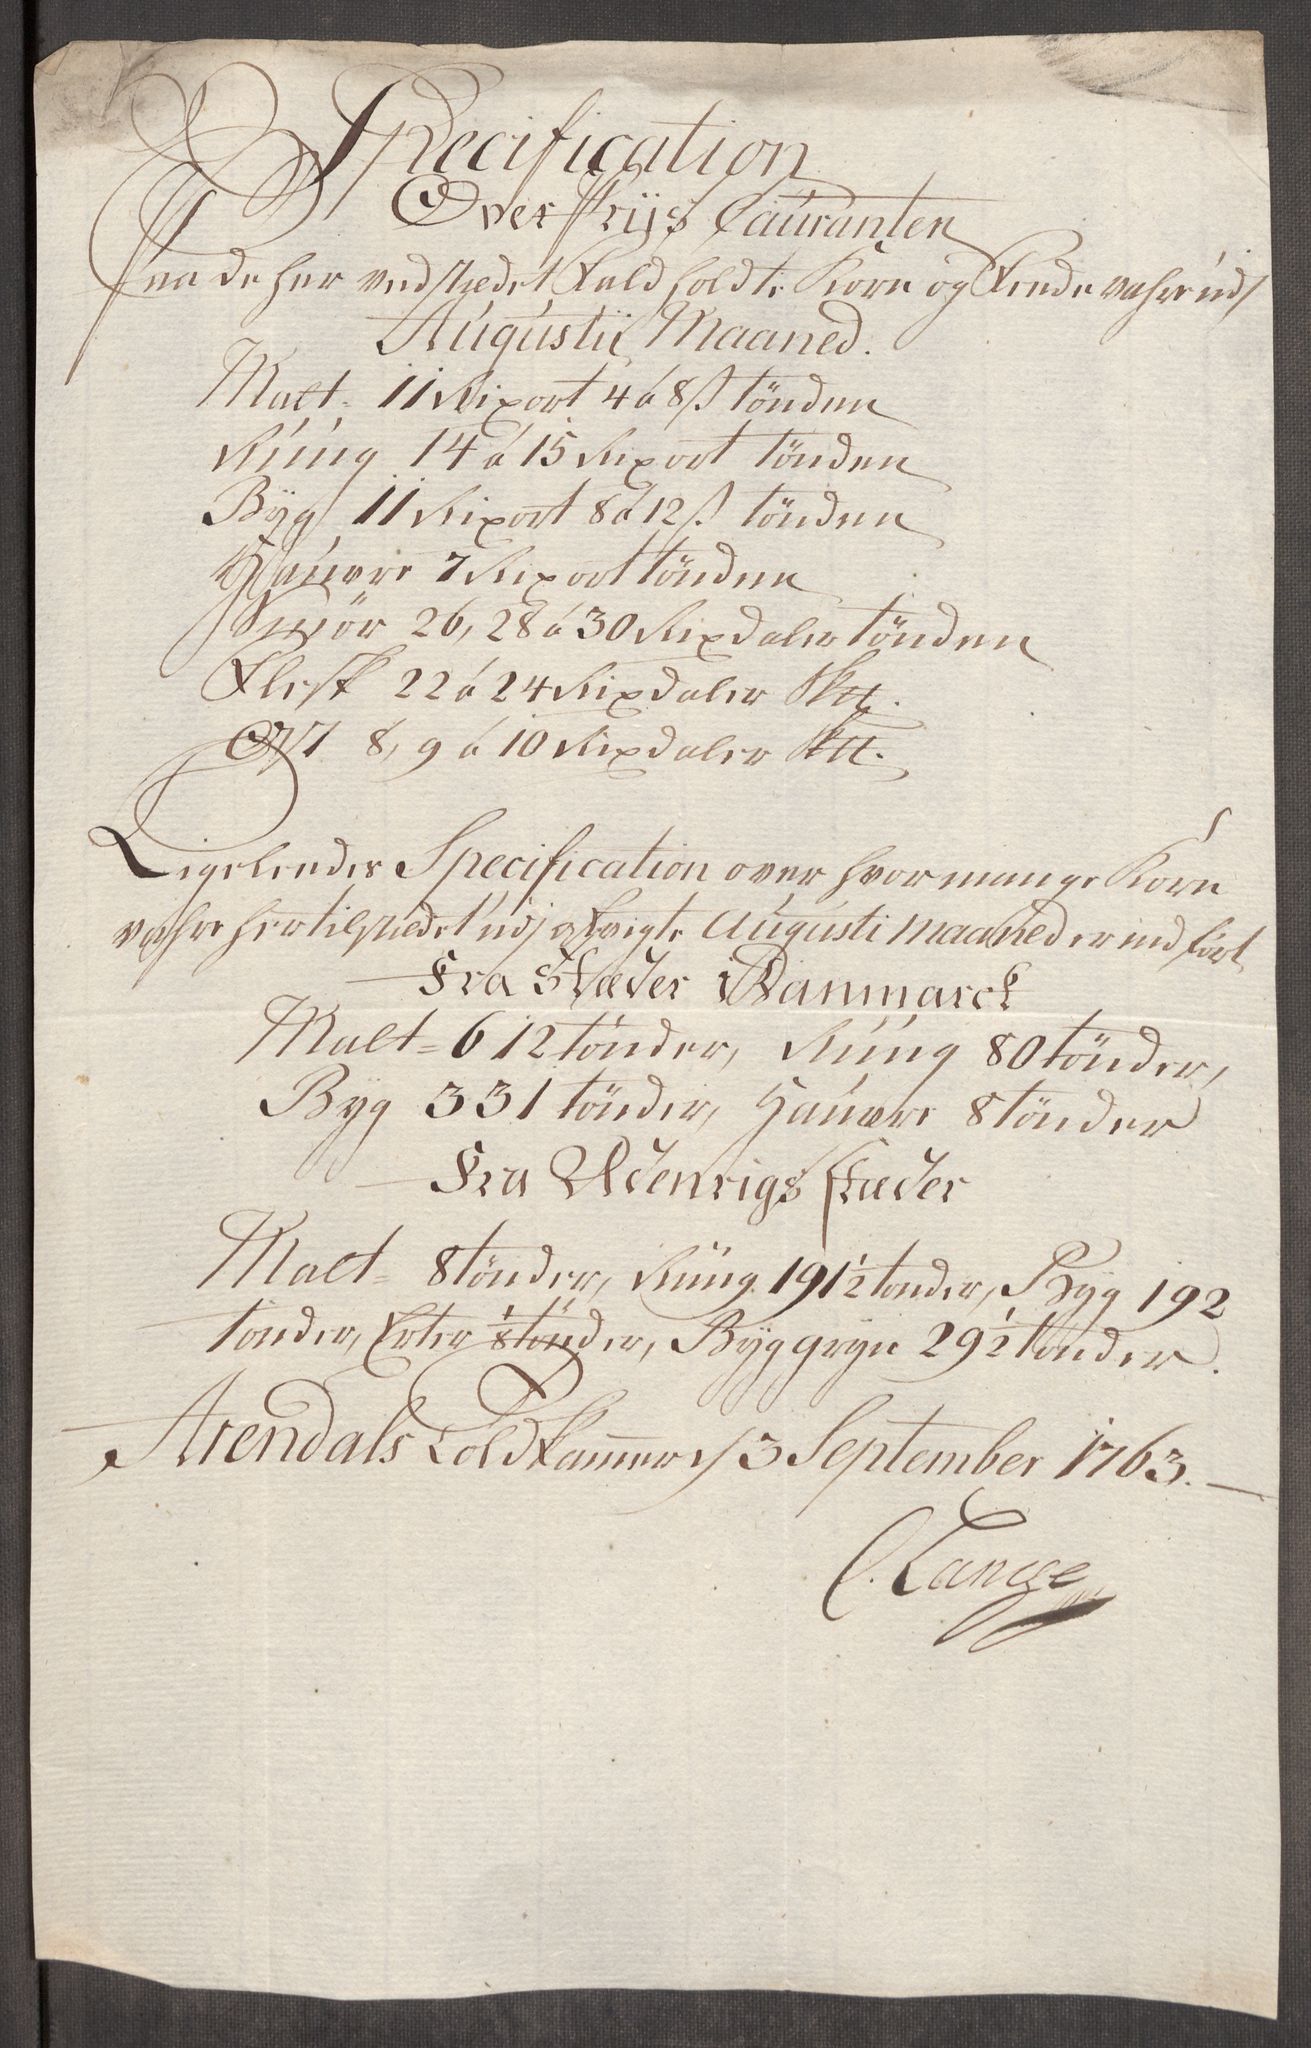 Specification
Over Priis Couranten
Paa de her vedstædet Fald holdte Korn og Fædevahre udj
Augustii Maaned.
Malt - 11 Rixort 4 à 8 s tönden
Rúúg 14 à 15 Rixort tönden
Byg 11 Rixort 8 à 12 s tönden
Haúere 7 Rixort tönden
Smör 26, 28 à 30 Rixdaler tönden
Flesk 22 à 24 Rixdaler Sk℔.
Ost 8, 9 à 10 Rixdaler Sk℔.
Ligeleedes Specification over hvor mange Korn
vahre her til stædet udj afvigte Augusti Maaned er indfört
Fra Stæder i Danmarck
Malt = 612 tönder, Rúúg 80 tönder,
Byg 331 tönder, Haúere 8 tönder
Fra Udenrigs stæder
Malt = 8 tönder, Rúúg 191½ tönder, Byg 192
tönder, Erter ⅛ tönder, Byggryn 29½ tönder.
Arendals Toldkammer d 3 September 1763.
C. Lange